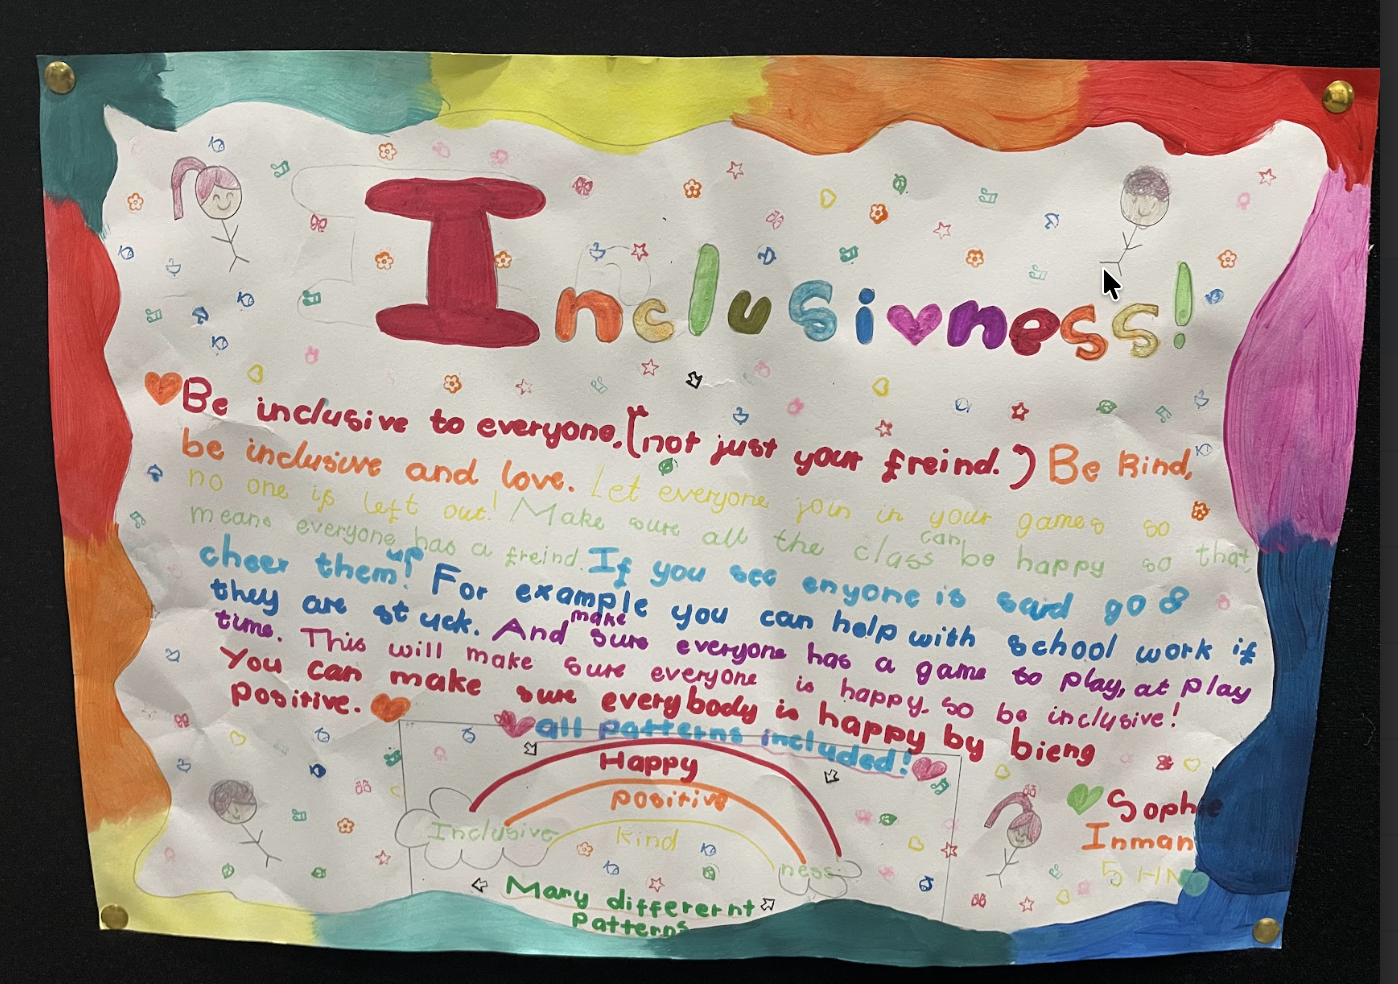 Inclusivness!
Be inclusive to everyone, (not just your freind.) Be kind,
be inclusive and love. Let everyone join in your games so
no one is left out! Make sure all the class can be happy so that
means everyone has a freind. If you see enyone is sad go &
cheer them up! For example you can help with school work if
they are stuck. And make sure everyone has a game to play, at play
time. This will make sure everyone is happy. so be inclusive!
You can make sure everybody is happy by bieng
positive.
all patterns included!
Happy
positive
Inclusive kind ness
Many differernt
Patterns
Sophie
Inman
5 HN